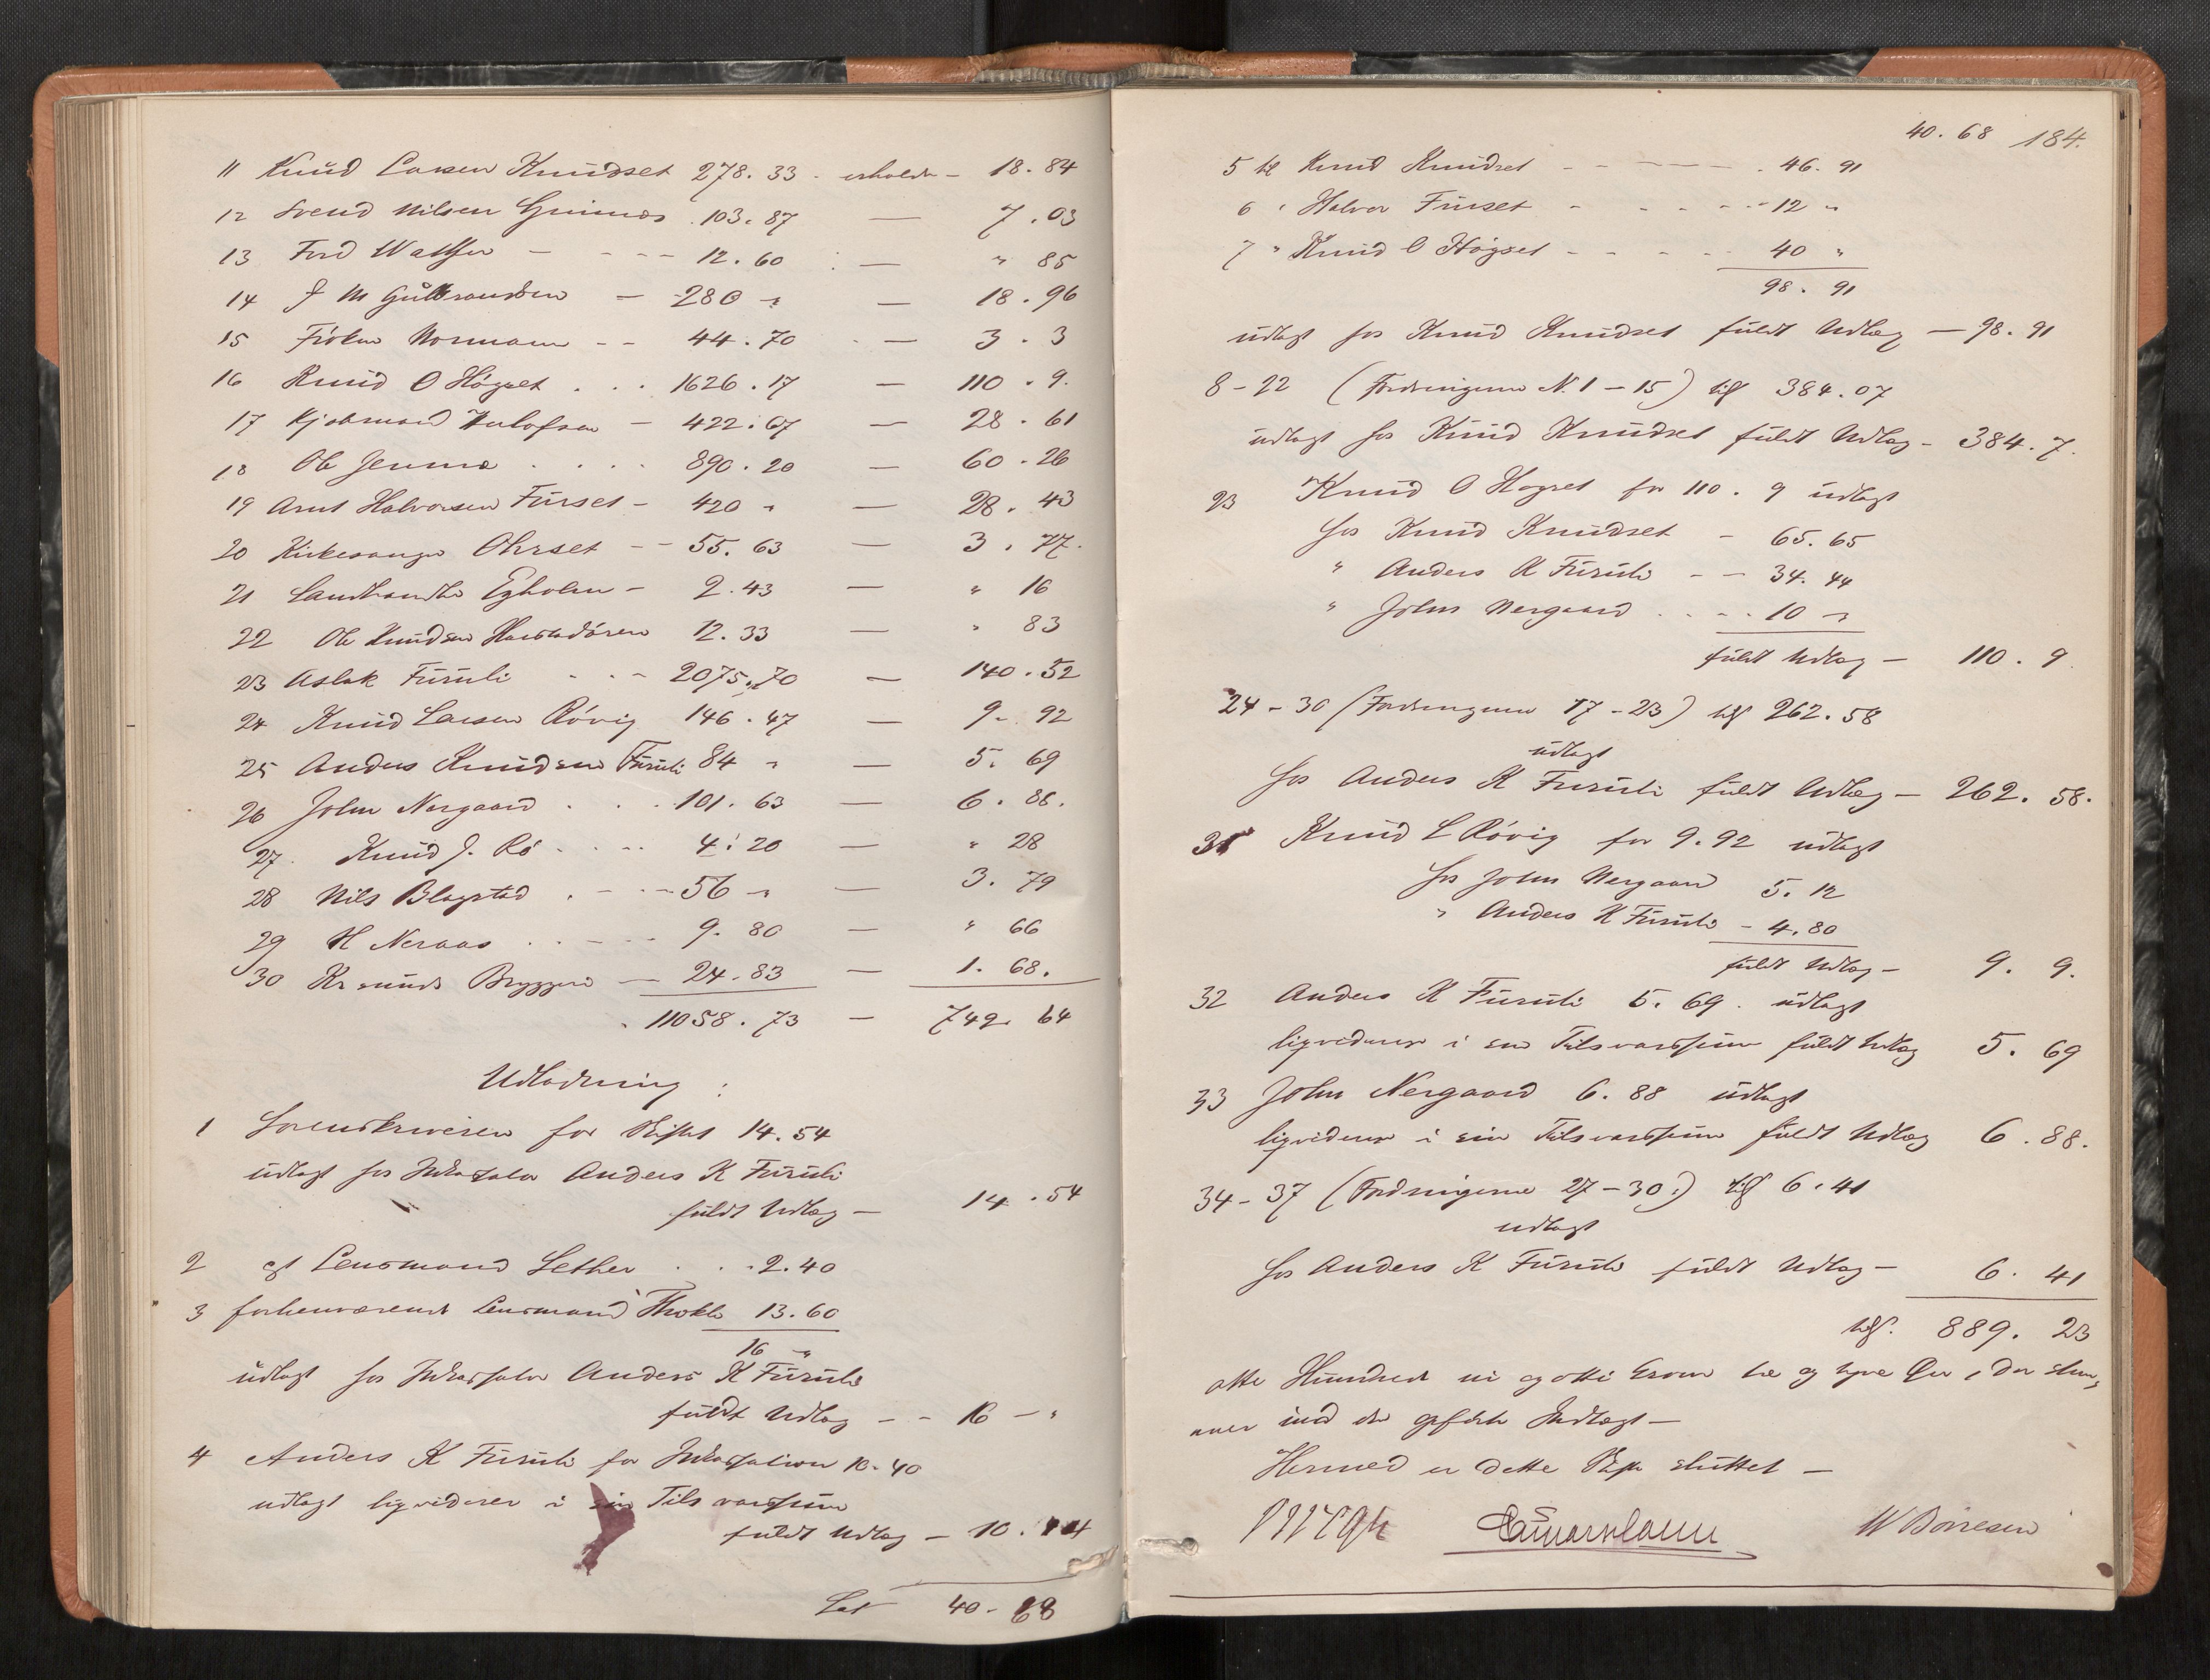 11 Knud Larsen Knudset 278.33 - erholder - 18.84
12 Svend Nilsen Grimnes . 103.87 — 7.03
13 Ferd Walther — - - - 12.60 — " 85
14 J M Gulbrandsen — 280 " — 18.96
15 Fröken Normann - - 44.70 . — 3.3
16 Knud O Högset . . . 1626.17 — 110.9.
17 Kjøbmand Herlofsen — 422.67 — 28.61
18 Ole Jenma . . . . 890.20 — 60.26
19 Arnt Halvorsen Furset - 420 " — 28.43
20 Kirkesanger Ohrset - - 55.63 — 3.77.
21 Landhandler Egholm - 2.43 — " 16
22 Ole Knudsen 12.33 — " 83
23 Aslak Furuli . . - 2075.70 — 140.52
24 Knud Larsen Rövig 146.47 — 9.92
25 Anders Knudsen Furuli 84 " — 5.69
26 John Nergaard . . . 101.63 — 6.88.
27. Knud J. Rö . . . . 4.20 — " 28
28 Nils Blagstad . - - - 56 " — 3.79
29 H Neraas . . - - - 9.80 — " 66
30 Krsunds Bryggeri — 24.83 — 1.68.
11058.73 — 749.64
Udlodning :
1 Sorenskriveren for Skiftet 14.54
udlagt hos Inkassator Anders K Furuli
fuldt Udlæg — 14.54
2 cst Lensmand Sether . . . 2.40
3 forhenværende Lensmand 13.60
16 "
udlagt hos Inkassator Anders K Furuli
fuldt Udlæg - - 16 - "
4 Anders K Furuli for Inkassation 10.40
udlagt ligviderer i sin Tilsvarssum
fuldt Udlæg — 10.14
Lat 40.68
40.68 184.
5 til Knud Knudset - - - - - . 46.91
6 " Halvor Furset - - - - - 12 "
7 " Knud O Högset - - - - - 40 "
98.91
udlagt hos Knud Knudset fuldt Udlæg — 98.91
8-22 (Fordringerne N. 1-15) tils 384.07
udlagt hos Knud Knudset fuldt Udlæg - 384.7.
23 Knud O Hogset for 110.9 udlagt
hos Knud Knudset - 65.65
" Anders K Furuli - - 34.44
" John Nergaard . . . . 10 "
fuldt Udlæg — 110.9
24-30 (Fordringerne 17-23) tils 262.58
udlagt
hos Anders K Furuli fuldt Udlæg — 262.58.
31 Knud L Rövig for 9.92 udlagt
hos John Nergaard 5.12
" Anders K Furuli - 4.80
fuldt Udlæg — 9.9.
32 Anders K Furuli 5.69. udlagt
ligviderer i sin Tilsvarssum fuldt Udlæg 5.69
33 John Nergaard 6.88 udlagt
ligviderer i sin Tilsvarssum fuldt Udlæg 6.88.
34-37 (Fordringerne 27-30.) tils 6.41
udlagt
hos Anders K Furuli fuldt Udlæg — 6.41
tils. 889.23
otte Hundrede ni og otti Kroner tre og tyve Øre, der stem-
mer med det opførte Indtægt —
Hermed er dette Skifte sluttet —
W Börresen